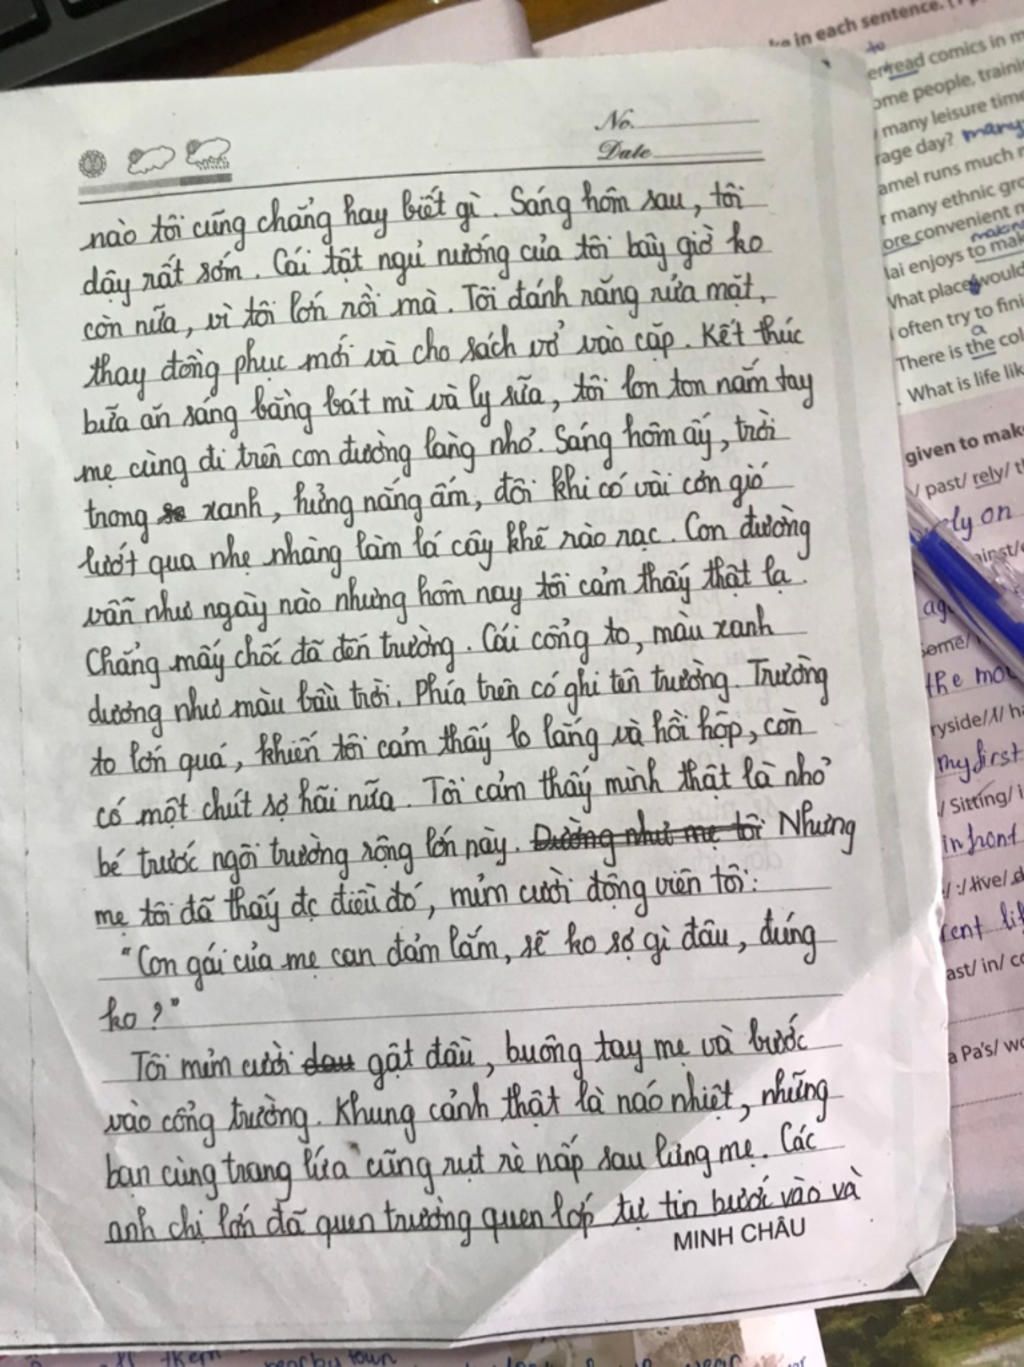 No.
Date
nào tôi cũng chẳng hay biết gì. Sáng hôm sau, tôi
dậy rất sớm. Cái tật ngủ nướng của tôi bây giờ ko
còn nữa, vì tôi lớn rồi mà. Tôi đánh răng rửa mặt,
thay đồng phục mới và cho sách vở vào cặp. Kết thúc
bữa ăn sáng bằng bát mì và ly sữa, tôi lon ton nắm tay
mẹ cùng đi trên con đường làng nhỏ. Sáng hôm ấy, trời
trong xanh, hửng nắng ấm, đôi khi có vài cơn gió
lướt qua nhẹ nhàng làm lá cây khẽ rào rạc. Con đường
vẫn như ngày nào nhưng hôm nay tôi cảm thấy thật lạ.
Chẳng mấy chốc đã đến trường. Cái cổng to, màu xanh
dương như màu bầu trời. Phía trên có ghi tên trường. Trường
to lớn quá, khiến tôi cảm thấy lo lắng và hồi hộp, còn
có một chút sợ hãi nữa. Tôi cảm thấy mình thật là nhỏ
bé trước ngôi trường rộng lớn này. Dường như mẹ tôi Nhưng
mẹ tôi đã thấy đc điều đó, mỉm cười động viên tôi:
"Con gái của mẹ can đảm lắm, sẽ ko sợ gì đâu, đúng
ko?"
Tôi mỉm cười đau gật đầu, buông tay mẹ và bước
vào cổng trường. Khung cảnh thật là náo nhiệt, những
bạn cùng trang lứa cũng rụt rè nấp sau lưng mẹ. Các
anh chị lớn đã quen trường quen lớp tự tin bước vào và
MINH CHÂU
in each sentence.
to
read comics in
ome people,
many leisure time
rage day? many
amel runs much
many ethnic
ore convenient
making
lai enjoys to mak
What place would
often try to fini
a
There is the col
What is life lik
given to mak
/ past/ rely/
ely on
ainst/
some/
the mou
ryside/
my first
/ Sitting/
in front
/ live/
rent lif
ast/ in/ co
a Pa's/ wo
them
nearby town